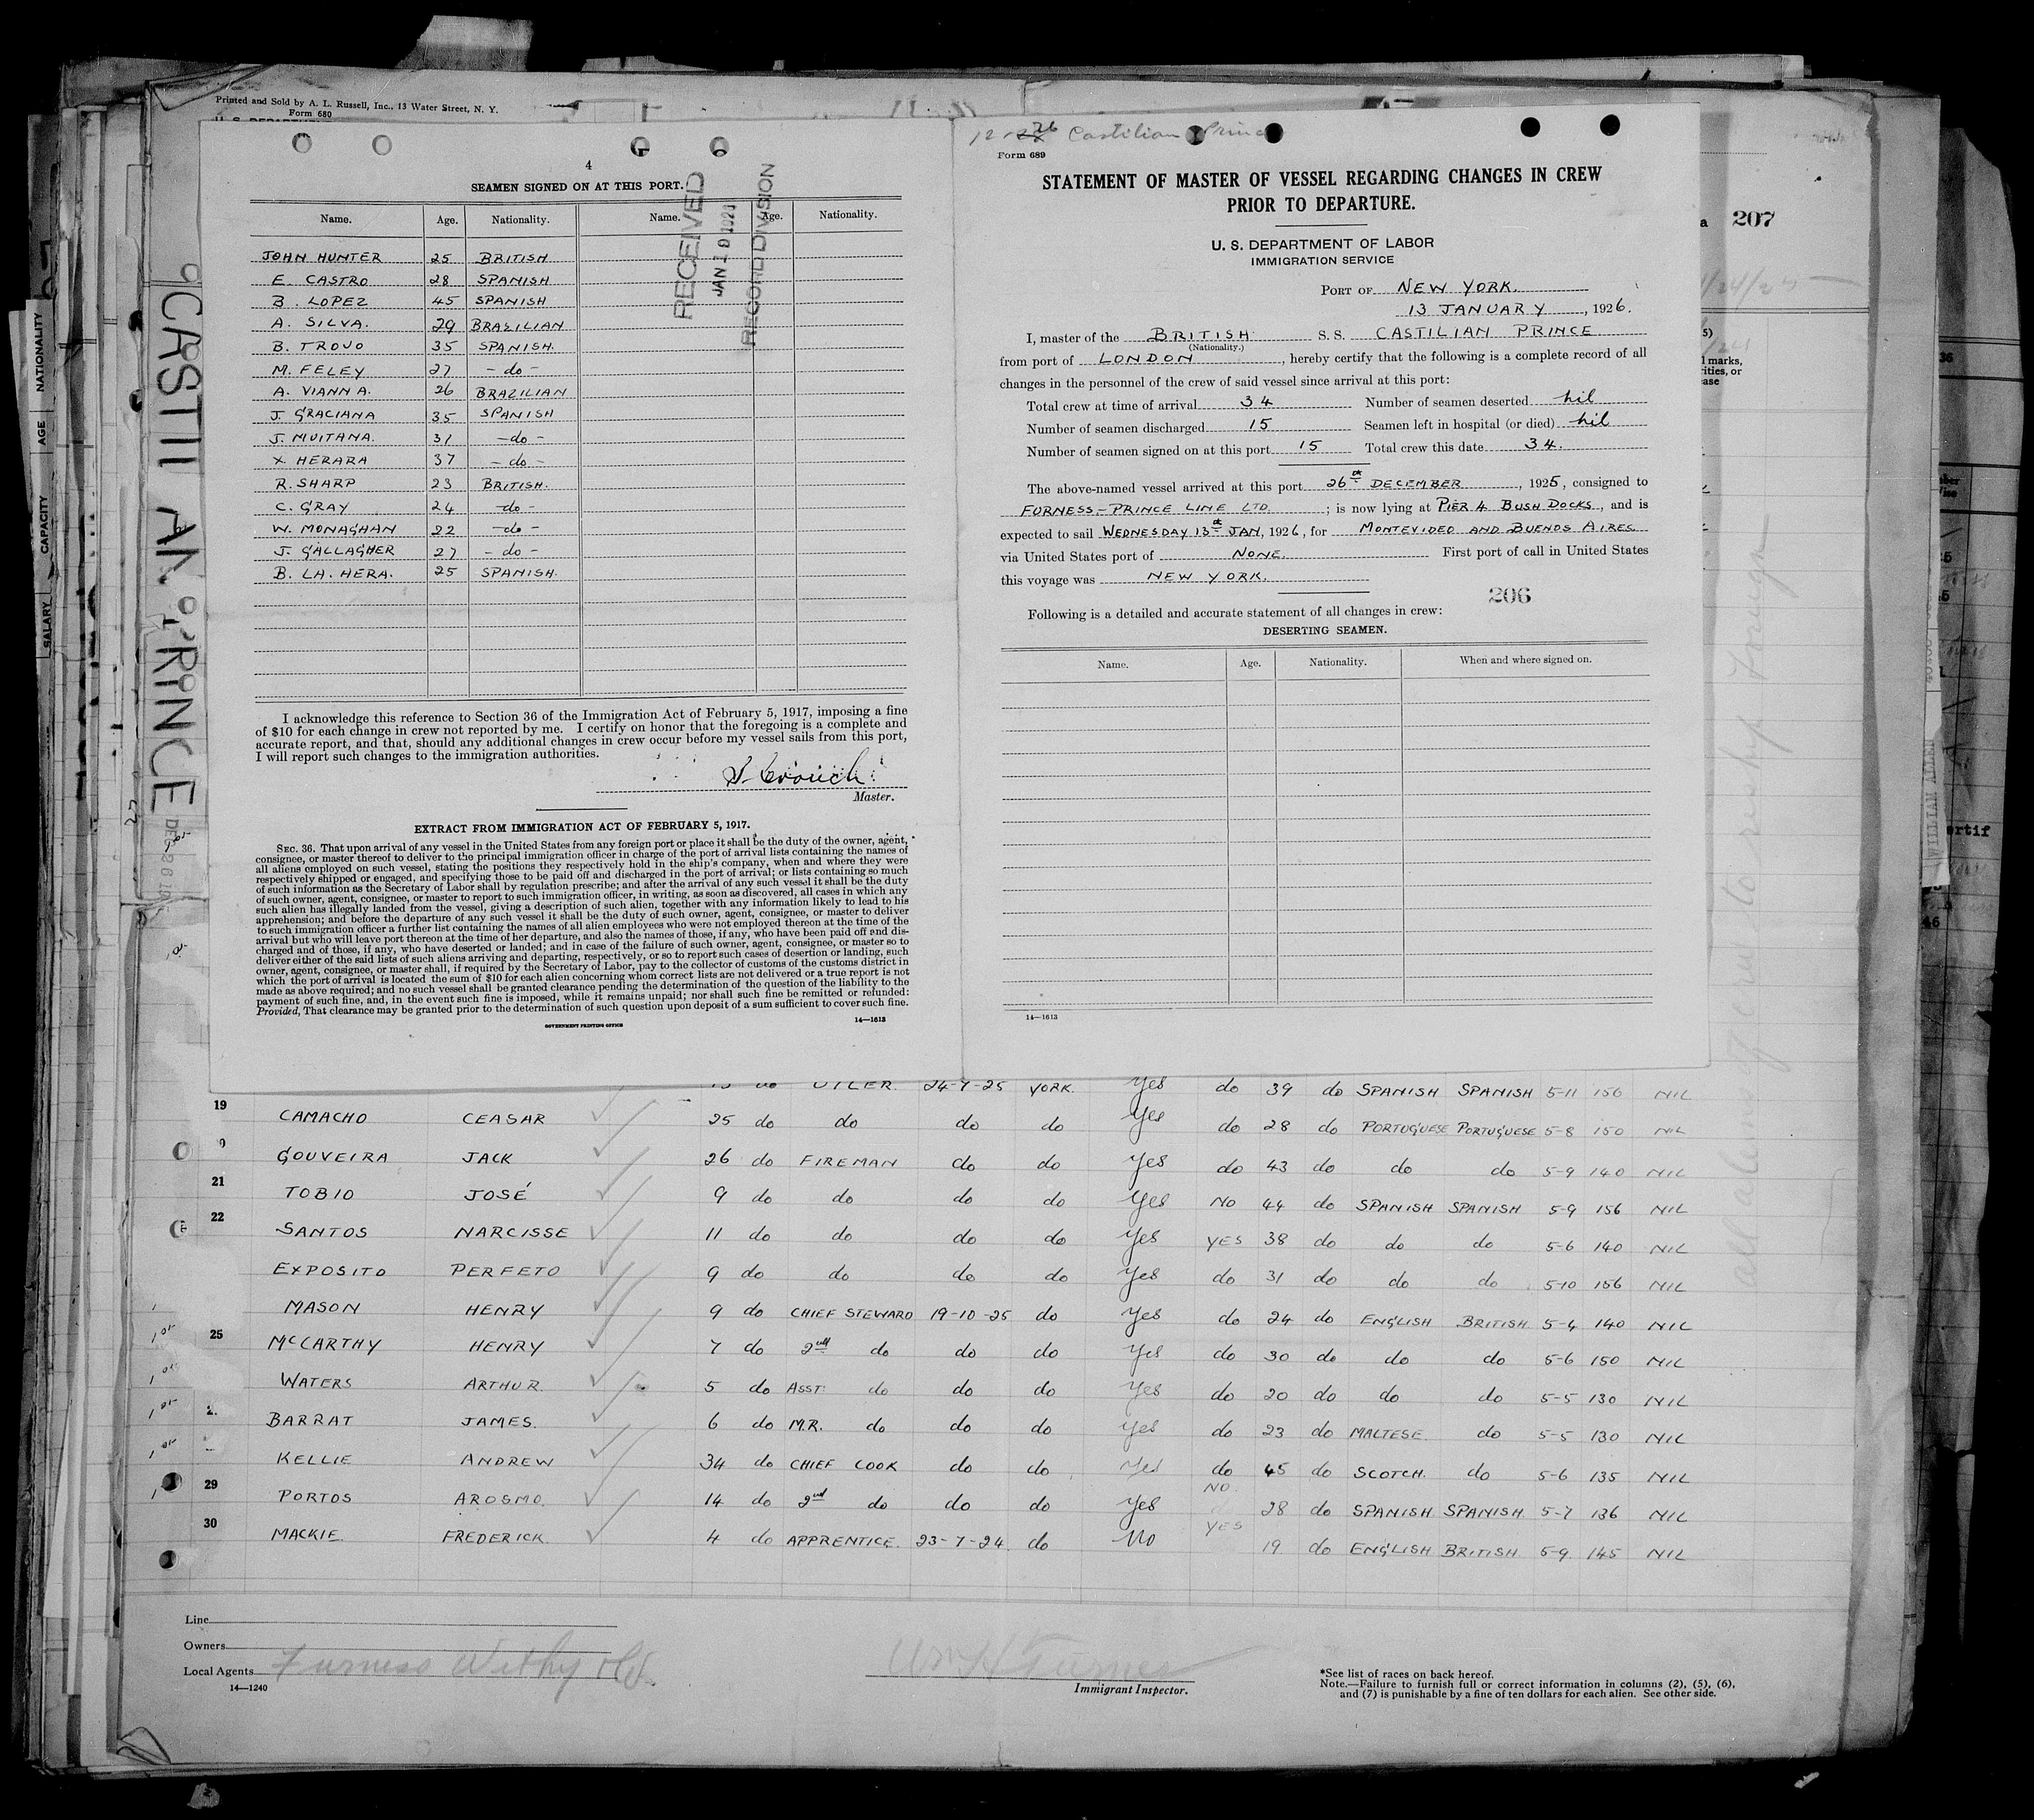 Printed and Sold by A. L. Russell, Inc., 13 Water Street, N. Y.
Form 680
4
SEAMEN SIGNED ON AT THIS PORT.
Name. Age. Nationality. Name. Age. Nationality.
RECEIVED
RECORD DIVISION
JOHN HUNTER 25 BRITISH
E. CASTRO 28 SPANISH
B. LOPEZ 45 SPANISH
A. SILVA. 29 BRAZILIAN
B. TROJO 35 SPANISH.
M. FELEY 27 - do -
A. VIANNA. 26 BRAZILIAN
J. GRACIANA 35 SPANISH
J. MUITANA. 31 - do -
X HERARA 37 - do -
R. SHARP 23 BRITISH.
C. GRAY 24 - do -
W. MONAGHAN 22 - do -
J. GALLAGHER 27 - do -
B. LA. HERA. 25 SPANISH.
I acknowledge this reference to Section 36 of the Immigration Act of February 5, 1917, imposing a fine
of $10 for each change in crew not reported by me. I certify on honor that the foregoing is a complete and
accurate report, and that, should any additional changes in crew occur before my vessel sails from this port,
I will report such changes to the immigration authorities.
Crouch
Master.
EXTRACT FROM IMMIGRATION ACT OF FEBRUARY 5, 1917.
SEC. 36. That upon arrival of any vessel in the United States from any foreign port or place it shall be the duty of the owner, agent,
consignee, or master thereof to deliver to the principal immigration officer in charge of the port of arrival lists containing the names of
all aliens employed on such vessel, stating the positions they respectively hold in the ship's company, when and where they were
respectively shipped or engaged, and specifying those to be paid off and discharged in the port of arrival; or lists containing so much
of such information as the Secretary of Labor shall by regulation prescribe; and after the arrival of any such vessel it shall be the duty
of such owner, agent, consignee, or master to report to such immigration officer, in writing, as soon as discovered, all cases in which any
such alien has illegally landed from the vessel, giving a description of such alien, together with any information likely to lead to his
apprehension; and before the departure of any such vessel it shall be the duty of such owner, agent, consignee, or master to deliver
to such immigration officer a further list containing the names of all alien employees who were not employed thereon at the time of the
arrival but who will leave port thereon at the time of her departure, and also the names of those, if any, who have been paid off and dis-
charged and of those, if any, who have deserted or landed; and in case of the failure of such owner, agent, consignee, or master so to
deliver either of the said lists of such aliens arriving and departing, respectively, or so to report such cases of desertion or landing, such
owner, agent, consignee, or master shall, if required by the Secretary of Labor, pay to the collector of customs of the customs district in
which the port of arrival is located the sum of $10 for each alien concerning whom correct lists are not delivered or a true report is not
made as above required; and no such vessel shall be granted clearance pending the determination of the question of the liability to the
payment of such fine, and, in the event such fine is imposed, while it remains unpaid; nor shall such fine be remitted or refunded:
Provided, That clearance may be granted prior to the determination of such question upon deposit of a sum sufficient to cover such fine.
GOVERNMENT PRINTING OFFICE 14—1613
Castilian Prince
Form 689
STATEMENT OF MASTER OF VESSEL REGARDING CHANGES IN CREW
PRIOR TO DEPARTURE.
U. S. DEPARTMENT OF LABOR
IMMIGRATION SERVICE
PORT OF NEW YORK.
13 JANUARY, 1926.
I, master of the BRITISH S. S. CASTILIAN PRINCE
(Nationality.)
from port of LONDON, hereby certify that the following is a complete record of all
changes in the personnel of the crew of said vessel since arrival at this port:
Total crew at time of arrival 34 Number of seamen deserted nil
Number of seamen discharged 15 Seamen left in hospital (or died) nil
Number of seamen signed on at this port 15 Total crew this date 34.
The above-named vessel arrived at this port 26th DECEMBER, 1925, consigned to
FURNESS-PRINCE LINE LTD; is now lying at PIER 4 BUSH DOCKS, and is
expected to sail WEDNESDAY 13th JAN, 1926, for MONTEVIDEO AND BUENOS AIRES
via United States port of NONE. First port of call in United States
this voyage was NEW YORK.
206
Following is a detailed and accurate statement of all changes in crew:
DESERTING SEAMEN.
Name. Age. Nationality. When and where signed on.
14—1613
207
CASTILIAN PRINCE
NATIONALITY
AGE
CAPACITY
SALARY
OILER. 24-7-25 YORK. Yes do 39 do SPANISH SPANISH 5-11 156 NIL
19 CAMACHO CEASAR 25 do do do do Yes do 28 do PORTUGUESE PORTUGUESE 5-8 150 NIL
GOUVEIRA JACK 26 do FIREMAN do do Yes do 43 do do do 5-9 140 NIL
21 TOBIO JOSÉ 9 do do do do Yes NO 44 do SPANISH SPANISH 5-9 156 NIL
22 SANTOS NARCISSE 11 do do do do Yes YES 38 do do do 5-6 140 NIL
EXPOSITO PERFETO 9 do do do do Yes do 31 do do do 5-10 156 NIL
MASON HENRY 9 do CHIEF STEWARD 19-10-25 do Yes do 24 do ENGLISH BRITISH 5-4 140 NIL
25 McCARTHY HENRY 7 do 2nd do do do Yes do 30 do do do 5-6 150 NIL
WATERS ARTHUR 5 do ASST do do do Yes do 20 do do do 5-5 130 NIL
BARRAT JAMES. 6 do M.R. do do do Yes do 23 do MALTESE. do 5-5 130 NIL
KELLIE ANDREW 34 do CHIEF COOK do do Yes do 45 do SCOTCH. do 5-6 135 NIL
29 PORTOS AROSMO. 14 do 2nd do do do Yes NO. 28 do SPANISH SPANISH 5-7 136 NIL
30 MACKIE. FREDERICK. 4 do APPRENTICE. 23-7-24 do No YES 19 do ENGLISH BRITISH 5-9 145 NIL
Line
Owners
Local Agents Furness Withy
14—1240
Immigrant Inspector.
*See list of races on back hereof.
Note.—Failure to furnish full or correct information in columns (2), (5), (6),
and (7) is punishable by a fine of ten dollars for each alien. See other side.